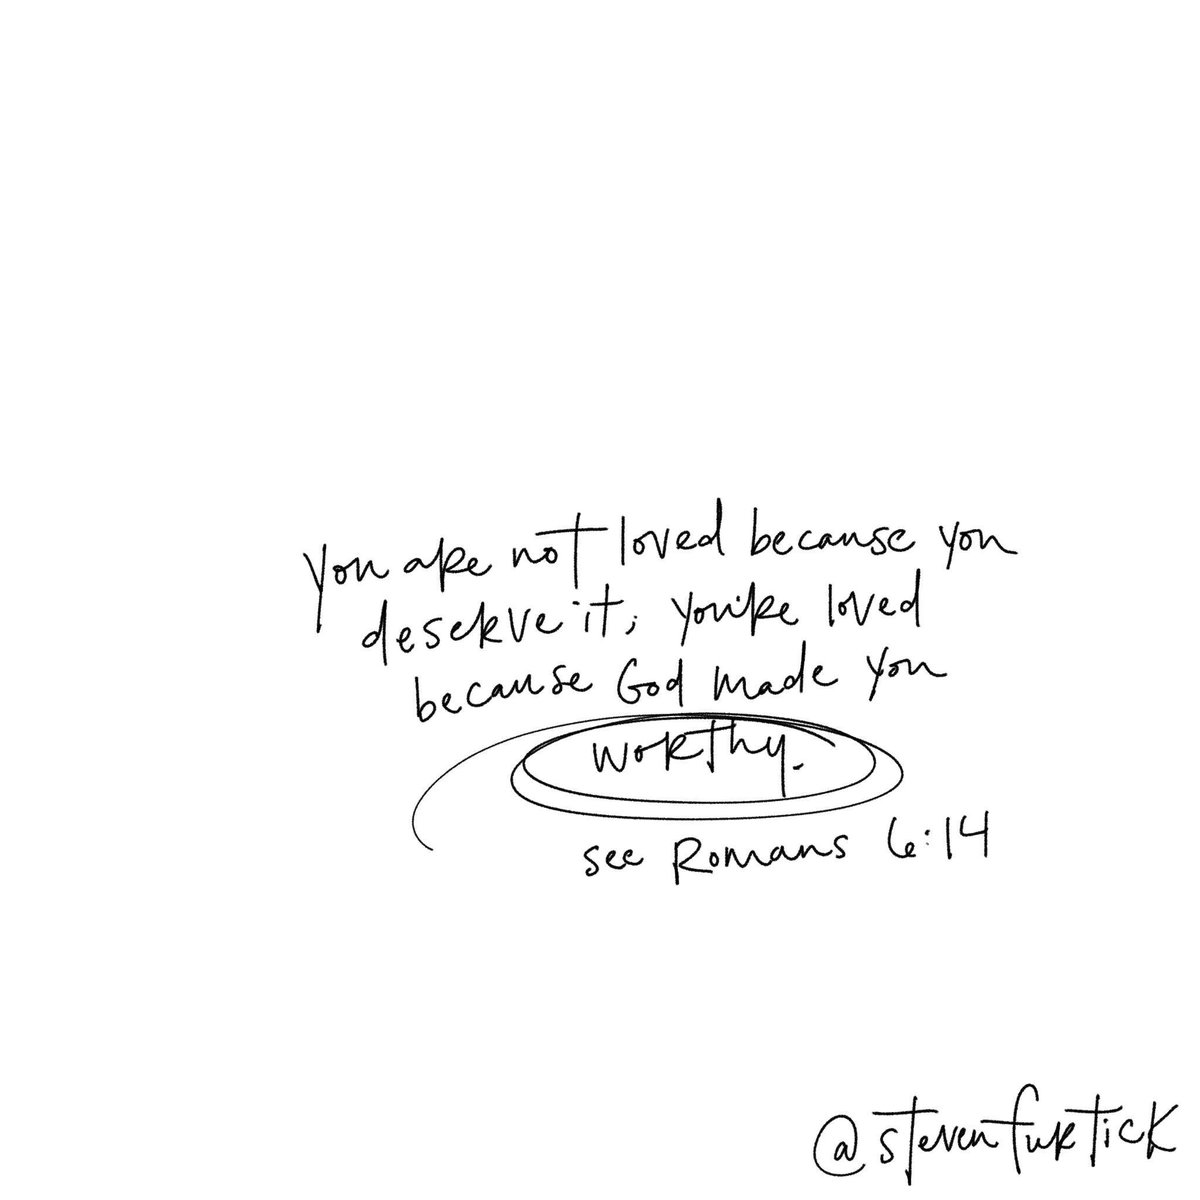 you are not loved because you
deserve it; you're loved
because God made you
worthy.
see Romans 6:14
@stevenfurtick